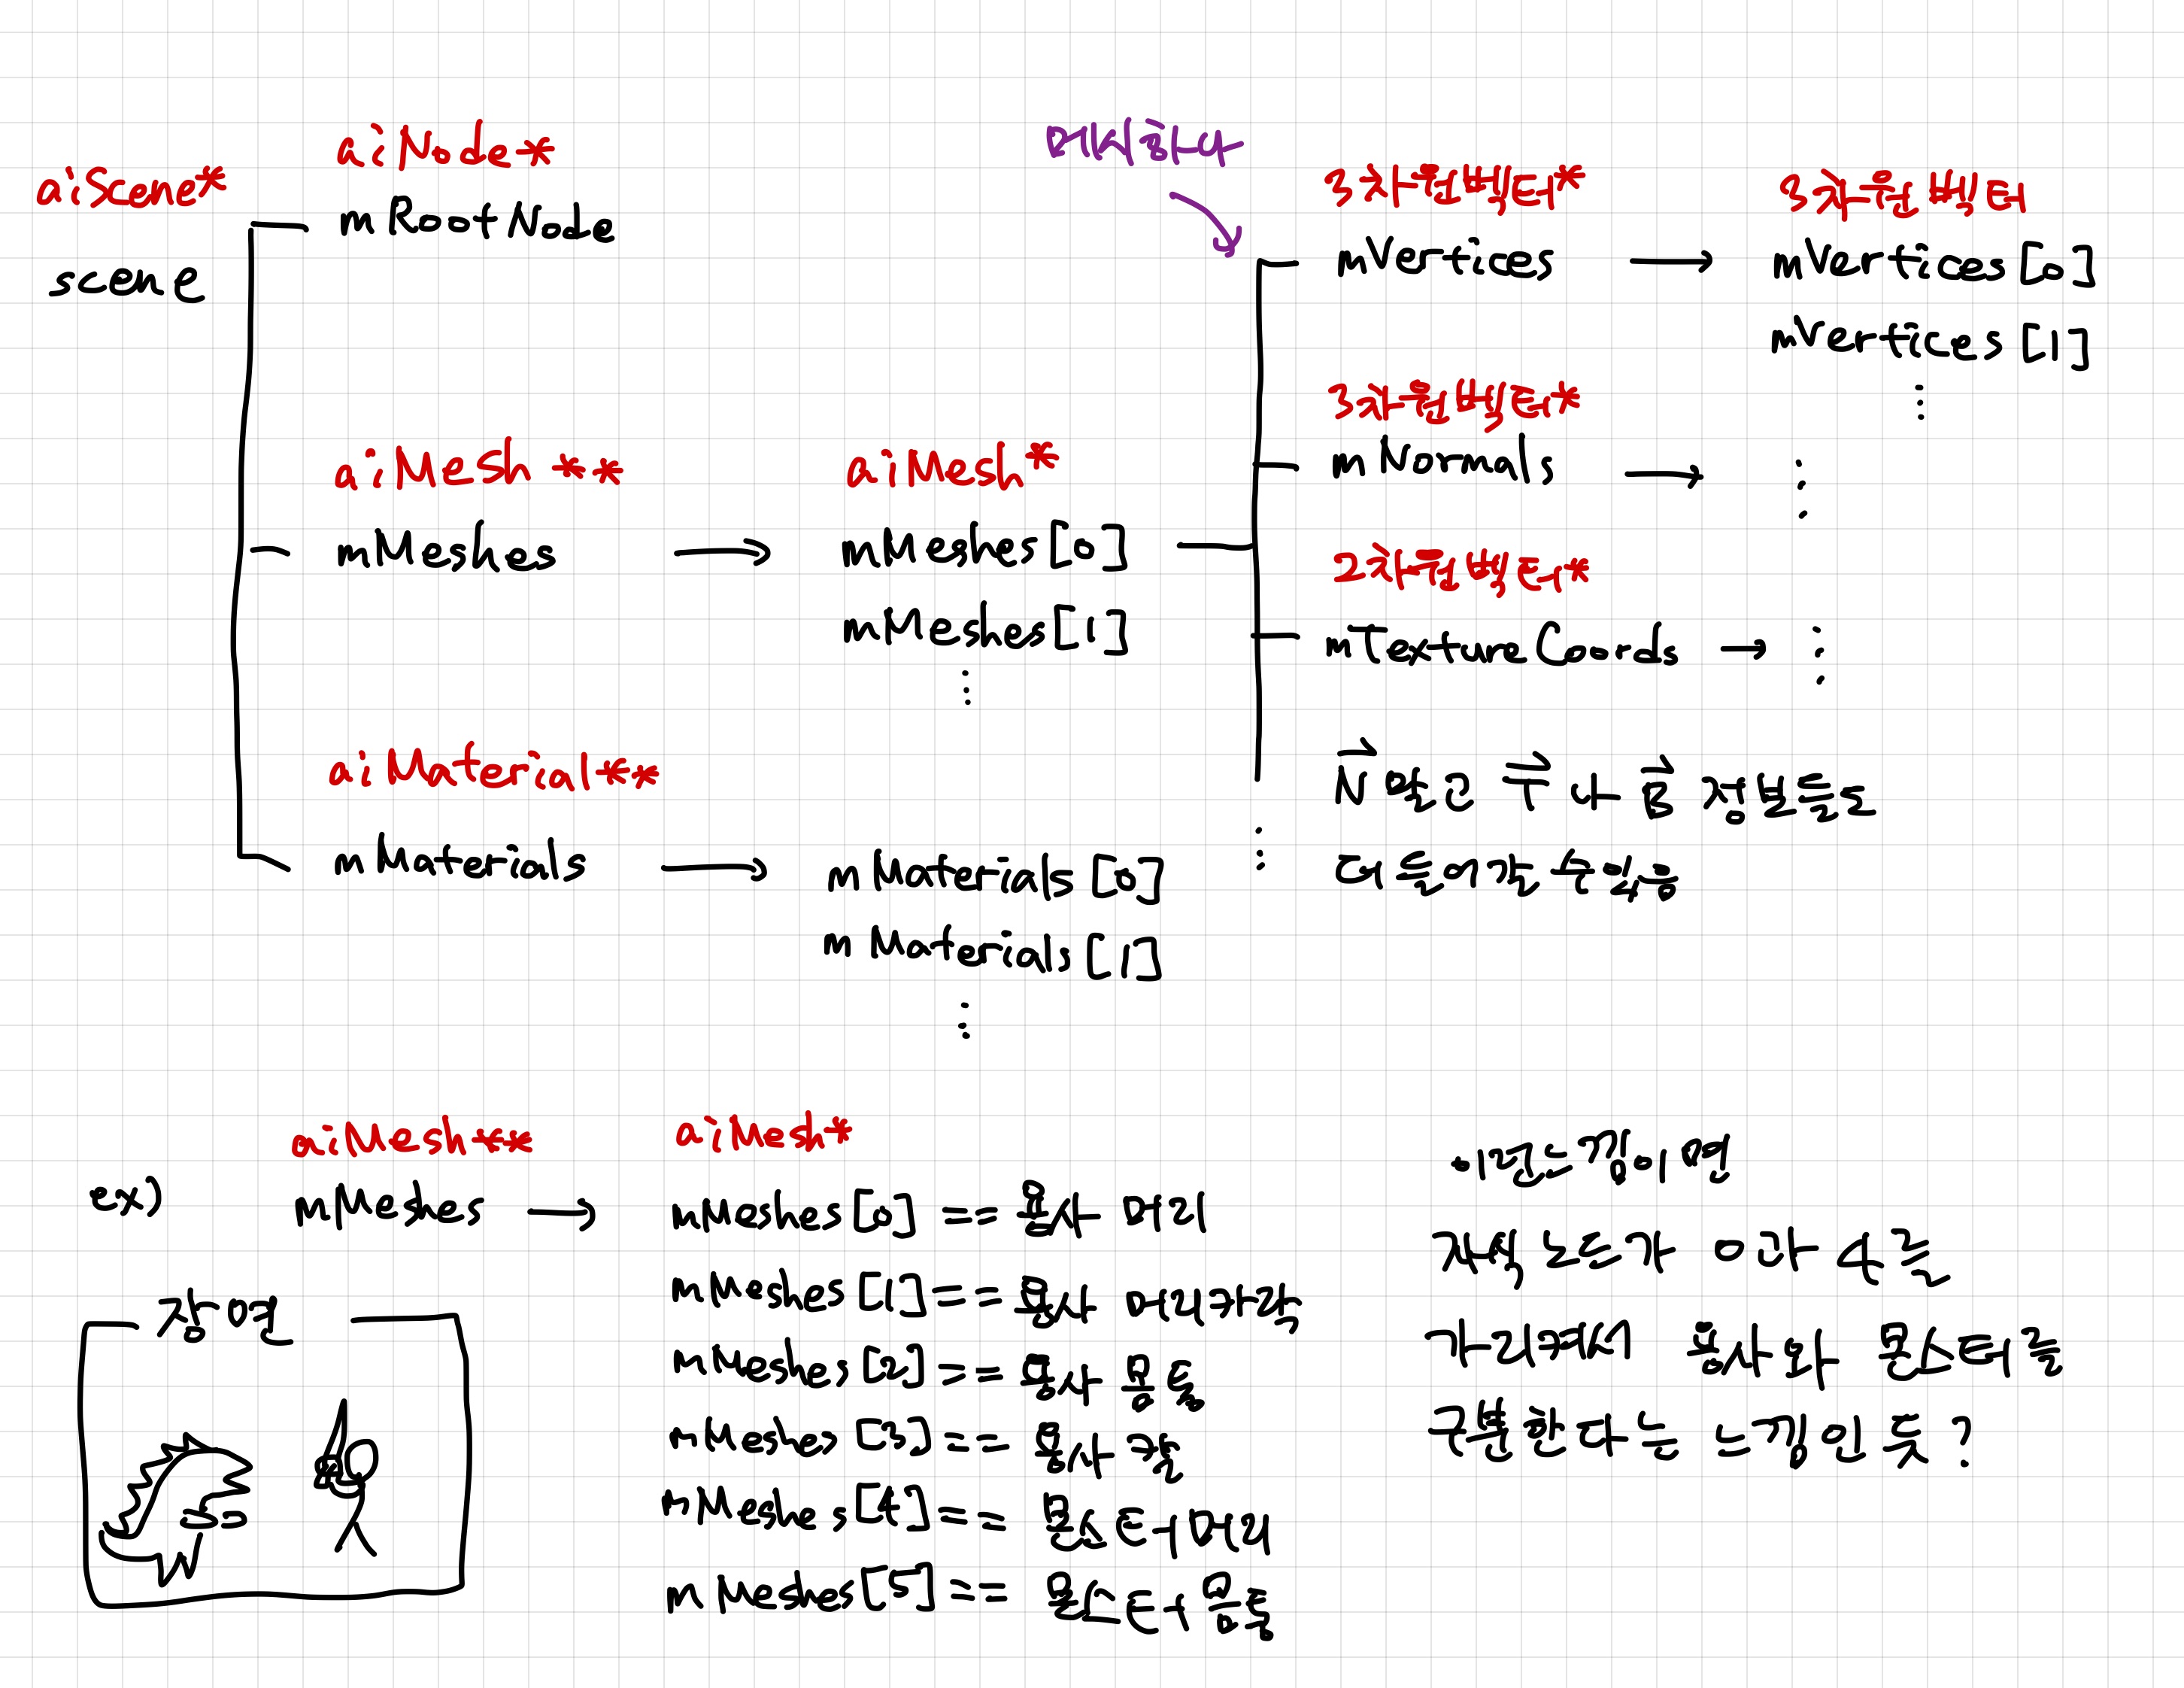 aiScene*
scene
aiNode*
mRootNode
aiMesh **
mMeshes
aiMesh*
mMeshes[0]
mMeshes[1]
aiMaterial**
mMaterials
mMaterials[0]
mMaterials[1]
메시하나
3차원벡터*
mVertices
3차원벡터
mVertices[0]
mVertices[1]
3차원벡터*
mNormals
2차원벡터*
mTextureCoords
N 말고 T 나 B 정보들도
더 들어갈 수 있음
ex)
aiMesh**
mMeshes
장면
aiMesh*
mMeshes[0] == 용사 머리
mMeshes[1] == 용사 머리카락
mMeshes[2] == 용사 몸통
mMeshes[3] == 용사 칼
mMeshes[4] == 몬스터머리
mMeshes[5] == 몬스터몸통
이런느낌이면
자식노드가 0과 4를
가리켜서 용사와 몬스터를
구분한다는 느낌인 듯?